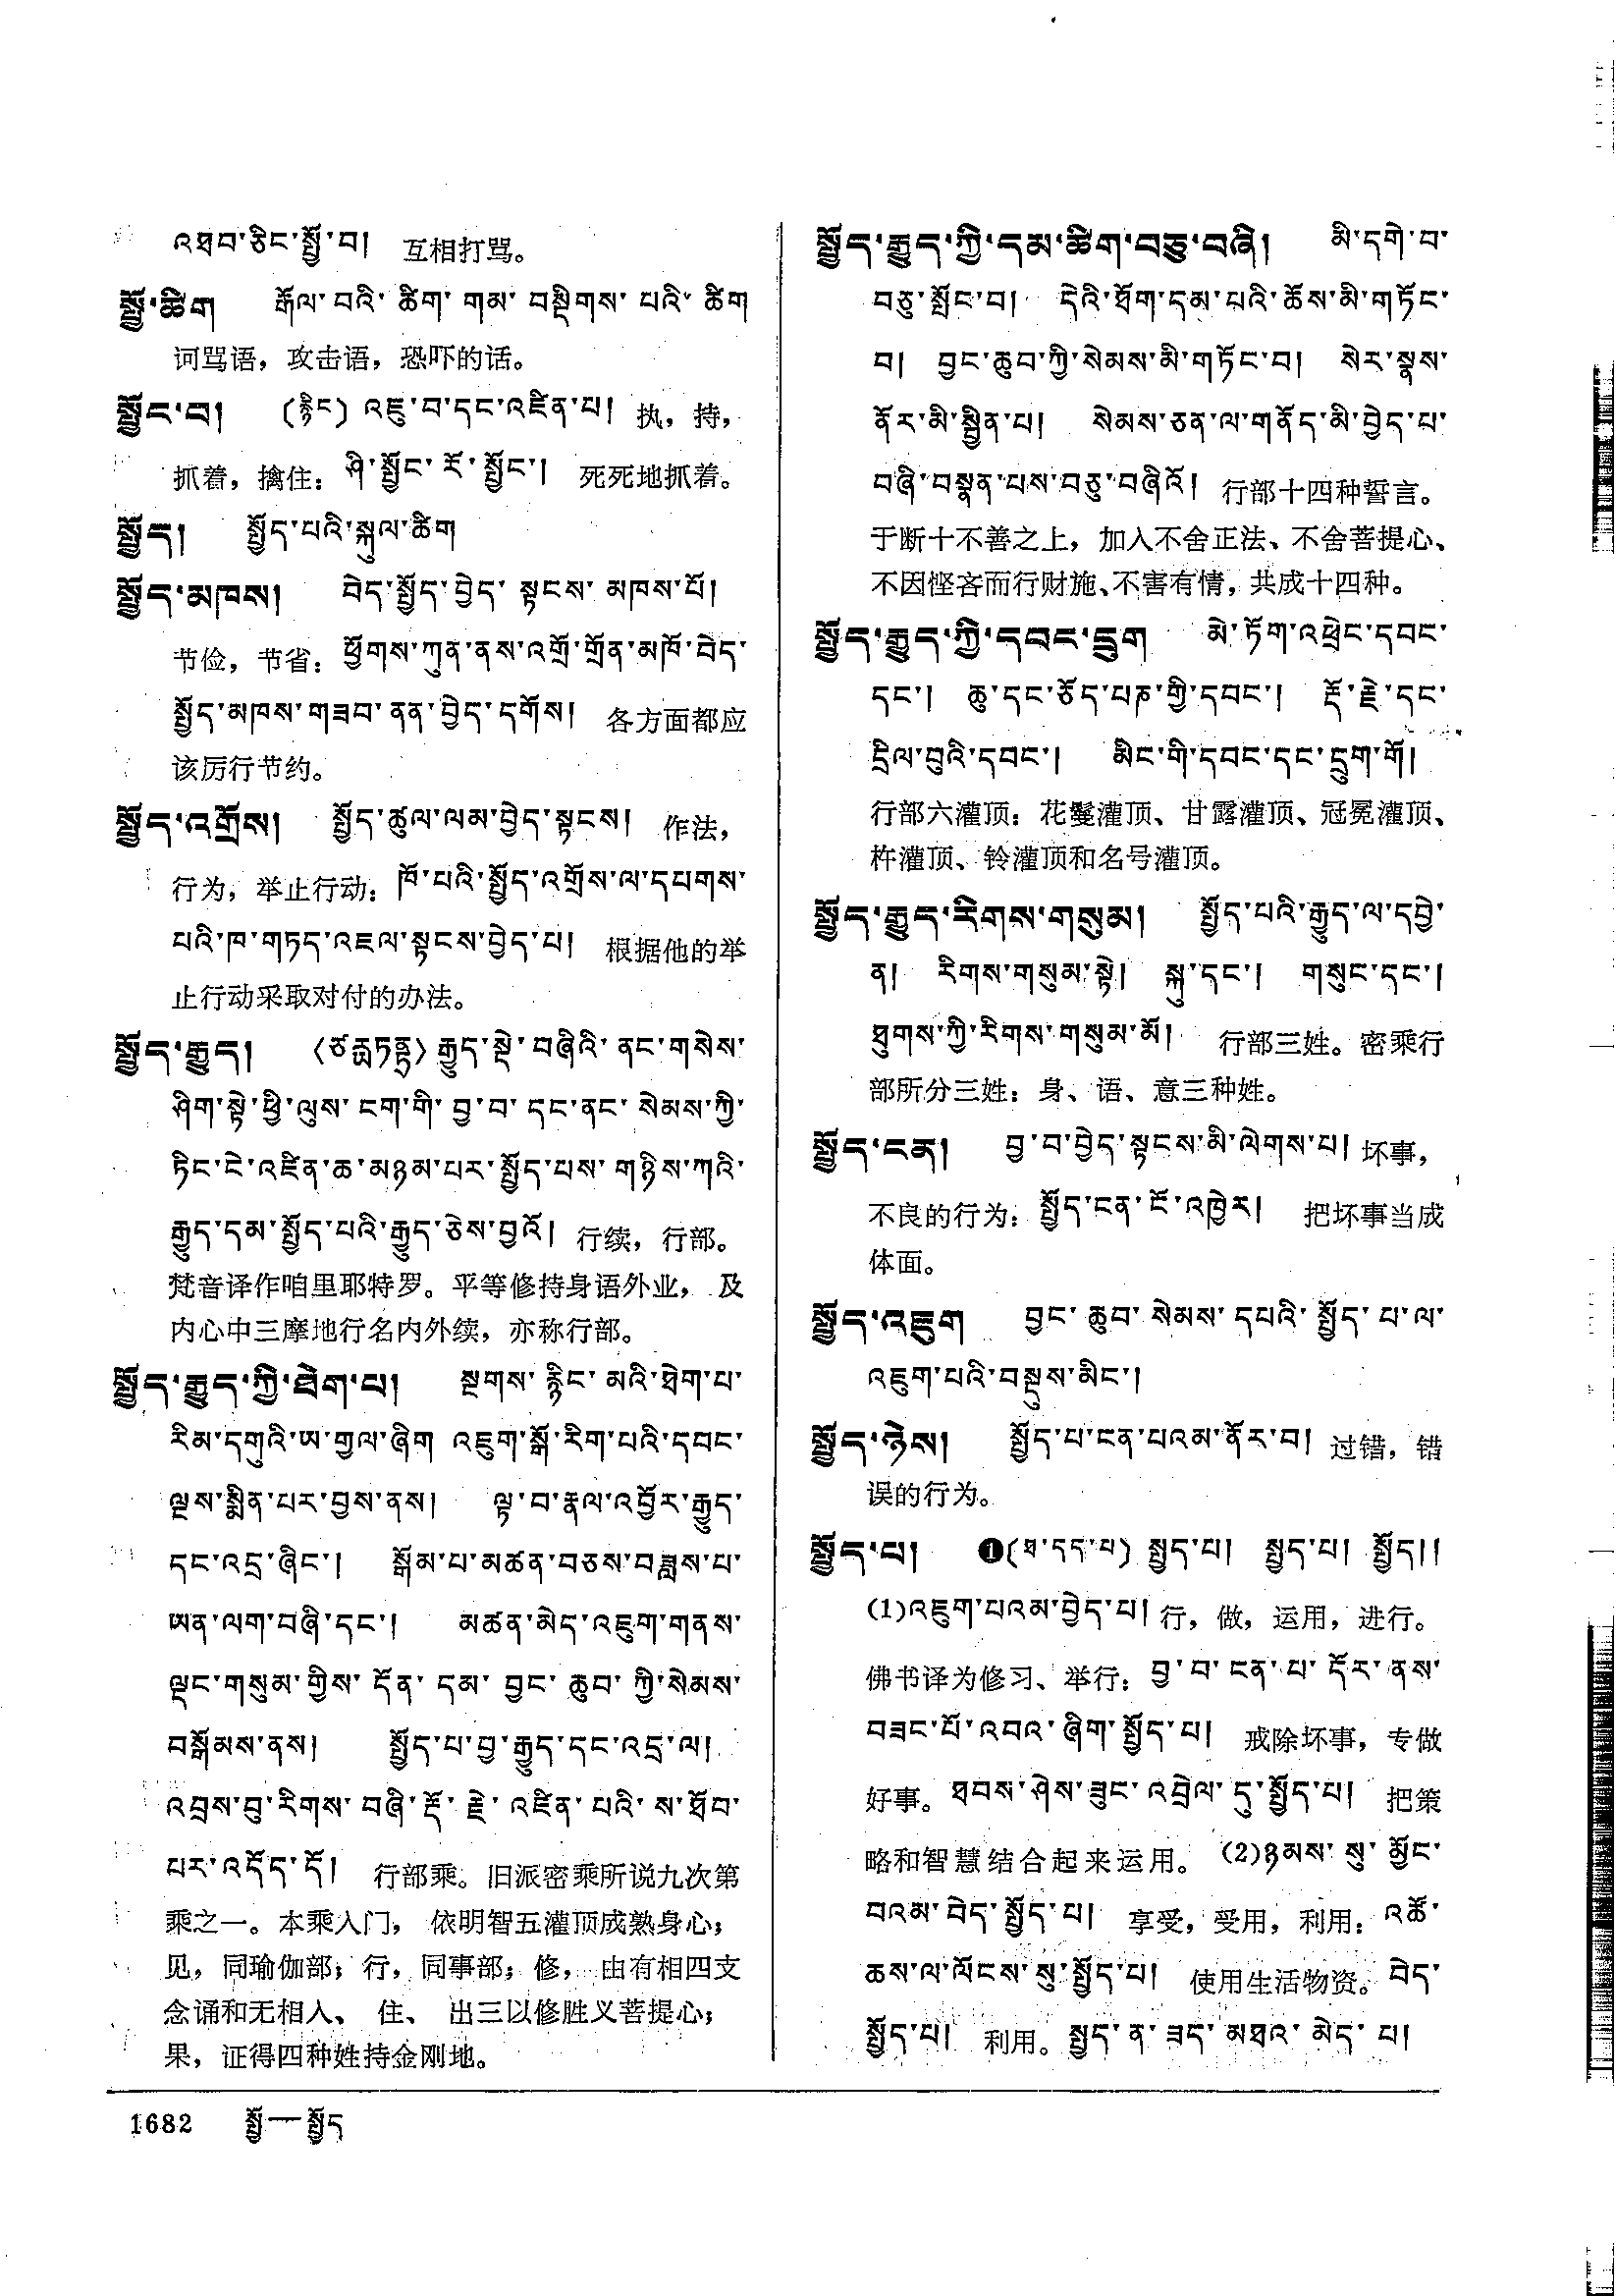 འཐབ་ཅིང་སྤྱོ་བ། 互相打骂。
སྤྱོ་ཚིག རྒོལ་བའི་ཚིག་གམ་བསྡིགས་པའི་ཚིག
诃骂语，攻击语，恐吓的话。
སྤྱོང་བ། (རྙིང) འཇུ་བ་དང་འཛིན་པ། 执，持，
抓着，擒住：ཤི་སྤྱོང་རོ་སྤྱོང་། 死死地抓着。
སྤྱོད། སྤྱོད་པའི་སྐུལ་ཚིག
སྤྱོད་མཁས། བེད་སྤྱོད་བྱེད་སྟངས་མཁས་པོ།
节俭，节省：ཕྱོགས་ཀུན་ནས་འགྲོ་གྲོན་མཁོ་བེད་
སྤྱོད་མཁས་གཟབ་ནན་བྱེད་དགོས། 各方面都应
该厉行节约。
སྤྱོད་འགྲོས། སྤྱོད་ཚུལ་ལམ་བྱེད་སྟངས། 作法，
行为，举止行动：ཁོ་པའི་སྤྱོད་འགྲོས་ལ་དཔགས་
པའི་ཁ་གཏད་འཇལ་སྟངས་བྱེད་པ། 根据他的举
止行动采取对付的办法。
སྤྱོད་རྒྱུད། 〈ཙརྻཏནྟྲ〉རྒྱུད་སྡེ་བཞིའི་ནང་གསེས་
ཤིག་སྟེ་ཕྱི་ལུས་ངག་གི་བྱ་བ་དང་ནང་སེམས་ཀྱི་
ཏིང་ངེ་འཛིན་ཆ་མཉམ་པར་སྤྱོད་པས་གཉིས་ཀའི་
རྒྱུད་དམ་སྤྱོད་པའི་རྒྱུད་ཅེས་བྱའོ། 行续，行部。
梵音译作咱里耶特罗。平等修持身语外业，及
内心中三摩地行名内外续，亦称行部。
སྤྱོད་རྒྱུད་ཀྱི་ཐེག་པ། སྔགས་རྙིང་མའི་ཐེག་པ་
རིམ་དགུའི་ཨ་གྱལ་ཞིག འཇུག་སྒོ་རིག་པའི་དབང་
ལྔས་སྨིན་པར་བྱས་ནས། ལྟ་བ་རྣལ་འབྱོར་རྒྱུད་
དང་འདྲ་ཞིང་། སྒོམ་པ་མཚན་བཅས་བཟླས་པ་
ཡན་ལག་བཞི་དང་། མཚན་མེད་འཇུག་གནས་
ལྡང་གསུམ་གྱིས་དོན་དམ་བྱང་ཆུབ་ཀྱི་སེམས་
བསྒོམས་ནས། སྤྱོད་པ་བྱ་རྒྱུད་དང་འདྲ་ལ།
འབྲས་བུ་རིགས་བཞི་རྡོ་རྗེ་འཛིན་པའི་ས་ཐོབ་
པར་འདོད་དོ། 行部乘。旧派密乘所说九次第
乘之一。本乘入门，依明智五灌顶成熟身心；
见，同瑜伽部；行，同事部；修，由有相四支
念诵和无相入、住、出三以修胜义菩提心；
果，证得四种姓持金刚地。
སྤྱོད་རྒྱུད་ཀྱི་དམ་ཚིག་བཅུ་བཞི། མི་དགེ་བ་
བཅུ་སྤོང་བ། དེའི་ཐོག་དམ་པའི་ཆོས་མི་གཏོང་
བ། བྱང་ཆུབ་ཀྱི་སེམས་མི་གཏོང་བ། སེར་སྣས་
ནོར་མི་སྦྱིན་པ། སེམས་ཅན་ལ་གནོད་མི་བྱེད་པ་
བཞི་བསྣན་པས་བཅུ་བཞིའོ། 行部十四种誓言。
于断十不善之上，加入不舍正法、不舍菩提心、
不因悭吝而行财施、不害有情，共成十四种。
སྤྱོད་རྒྱུད་ཀྱི་དབང་དྲུག མེ་ཏོག་འཕྲེང་དབང་
དང་། ཆུ་དང་ཅོད་པཎ་གྱི་དབང་། རྡོ་རྗེ་དང་
དྲིལ་བུའི་དབང་། མིང་གི་དབང་དང་དྲུག་གོ།
行部六灌顶：花鬘灌顶、甘露灌顶、冠冕灌顶、
杵灌顶、铃灌顶和名号灌顶。
སྤྱོད་རྒྱུད་རིགས་གསུམ། སྤྱོད་པའི་རྒྱུད་ལ་དབྱེ་
ན། རིགས་གསུམ་སྟེ། སྐུ་དང་། གསུང་དང་།
ཐུགས་ཀྱི་རིགས་གསུམ་མོ། 行部三姓。密乘行
部所分三姓：身、语、意三种姓。
སྤྱོད་ངན། བྱ་བ་བྱེད་སྟངས་མི་ལེགས་པ། 坏事，
不良的行为：སྤྱོད་ངན་ངོ་འཁྱེར། 把坏事当成
体面。
སྤྱོད་འཇུག བྱང་ཆུབ་སེམས་དཔའི་སྤྱོད་པ་ལ་
འཇུག་པའི་བསྡུས་མིང་།
སྤྱོད་ཉེས། སྤྱོད་པ་ངན་པའམ་ནོར་བ། 过错，错
误的行为。
སྤྱོད་པ། ❶(ཐ་དད་པ) སྤྱད་པ། སྤྱད་པ། སྤྱོད།།
(1)འཇུག་པའམ་བྱེད་པ། 行，做，运用，进行。
佛书译为修习、举行：བྱ་བ་ངན་པ་དོར་ནས་
བཟང་པོ་འབའ་ཞིག་སྤྱོད་པ། 戒除坏事，专做
好事。ཐབས་ཤེས་ཟུང་འབྲེལ་དུ་སྤྱོད་པ། 把策
略和智慧结合起来运用。(2)ཉམས་སུ་མྱོང་
བའམ་བེད་སྤྱོད་པ། 享受，受用，利用：འཚོ་
ཆས་ལ་ལོངས་སུ་སྤྱོད་པ། 使用生活物资。བེད་
སྤྱོད་པ། 利用。སྤྱད་ན་ཟད་མཐའ་མེད་པ།
1682 སྤྱོ—སྤྱོད